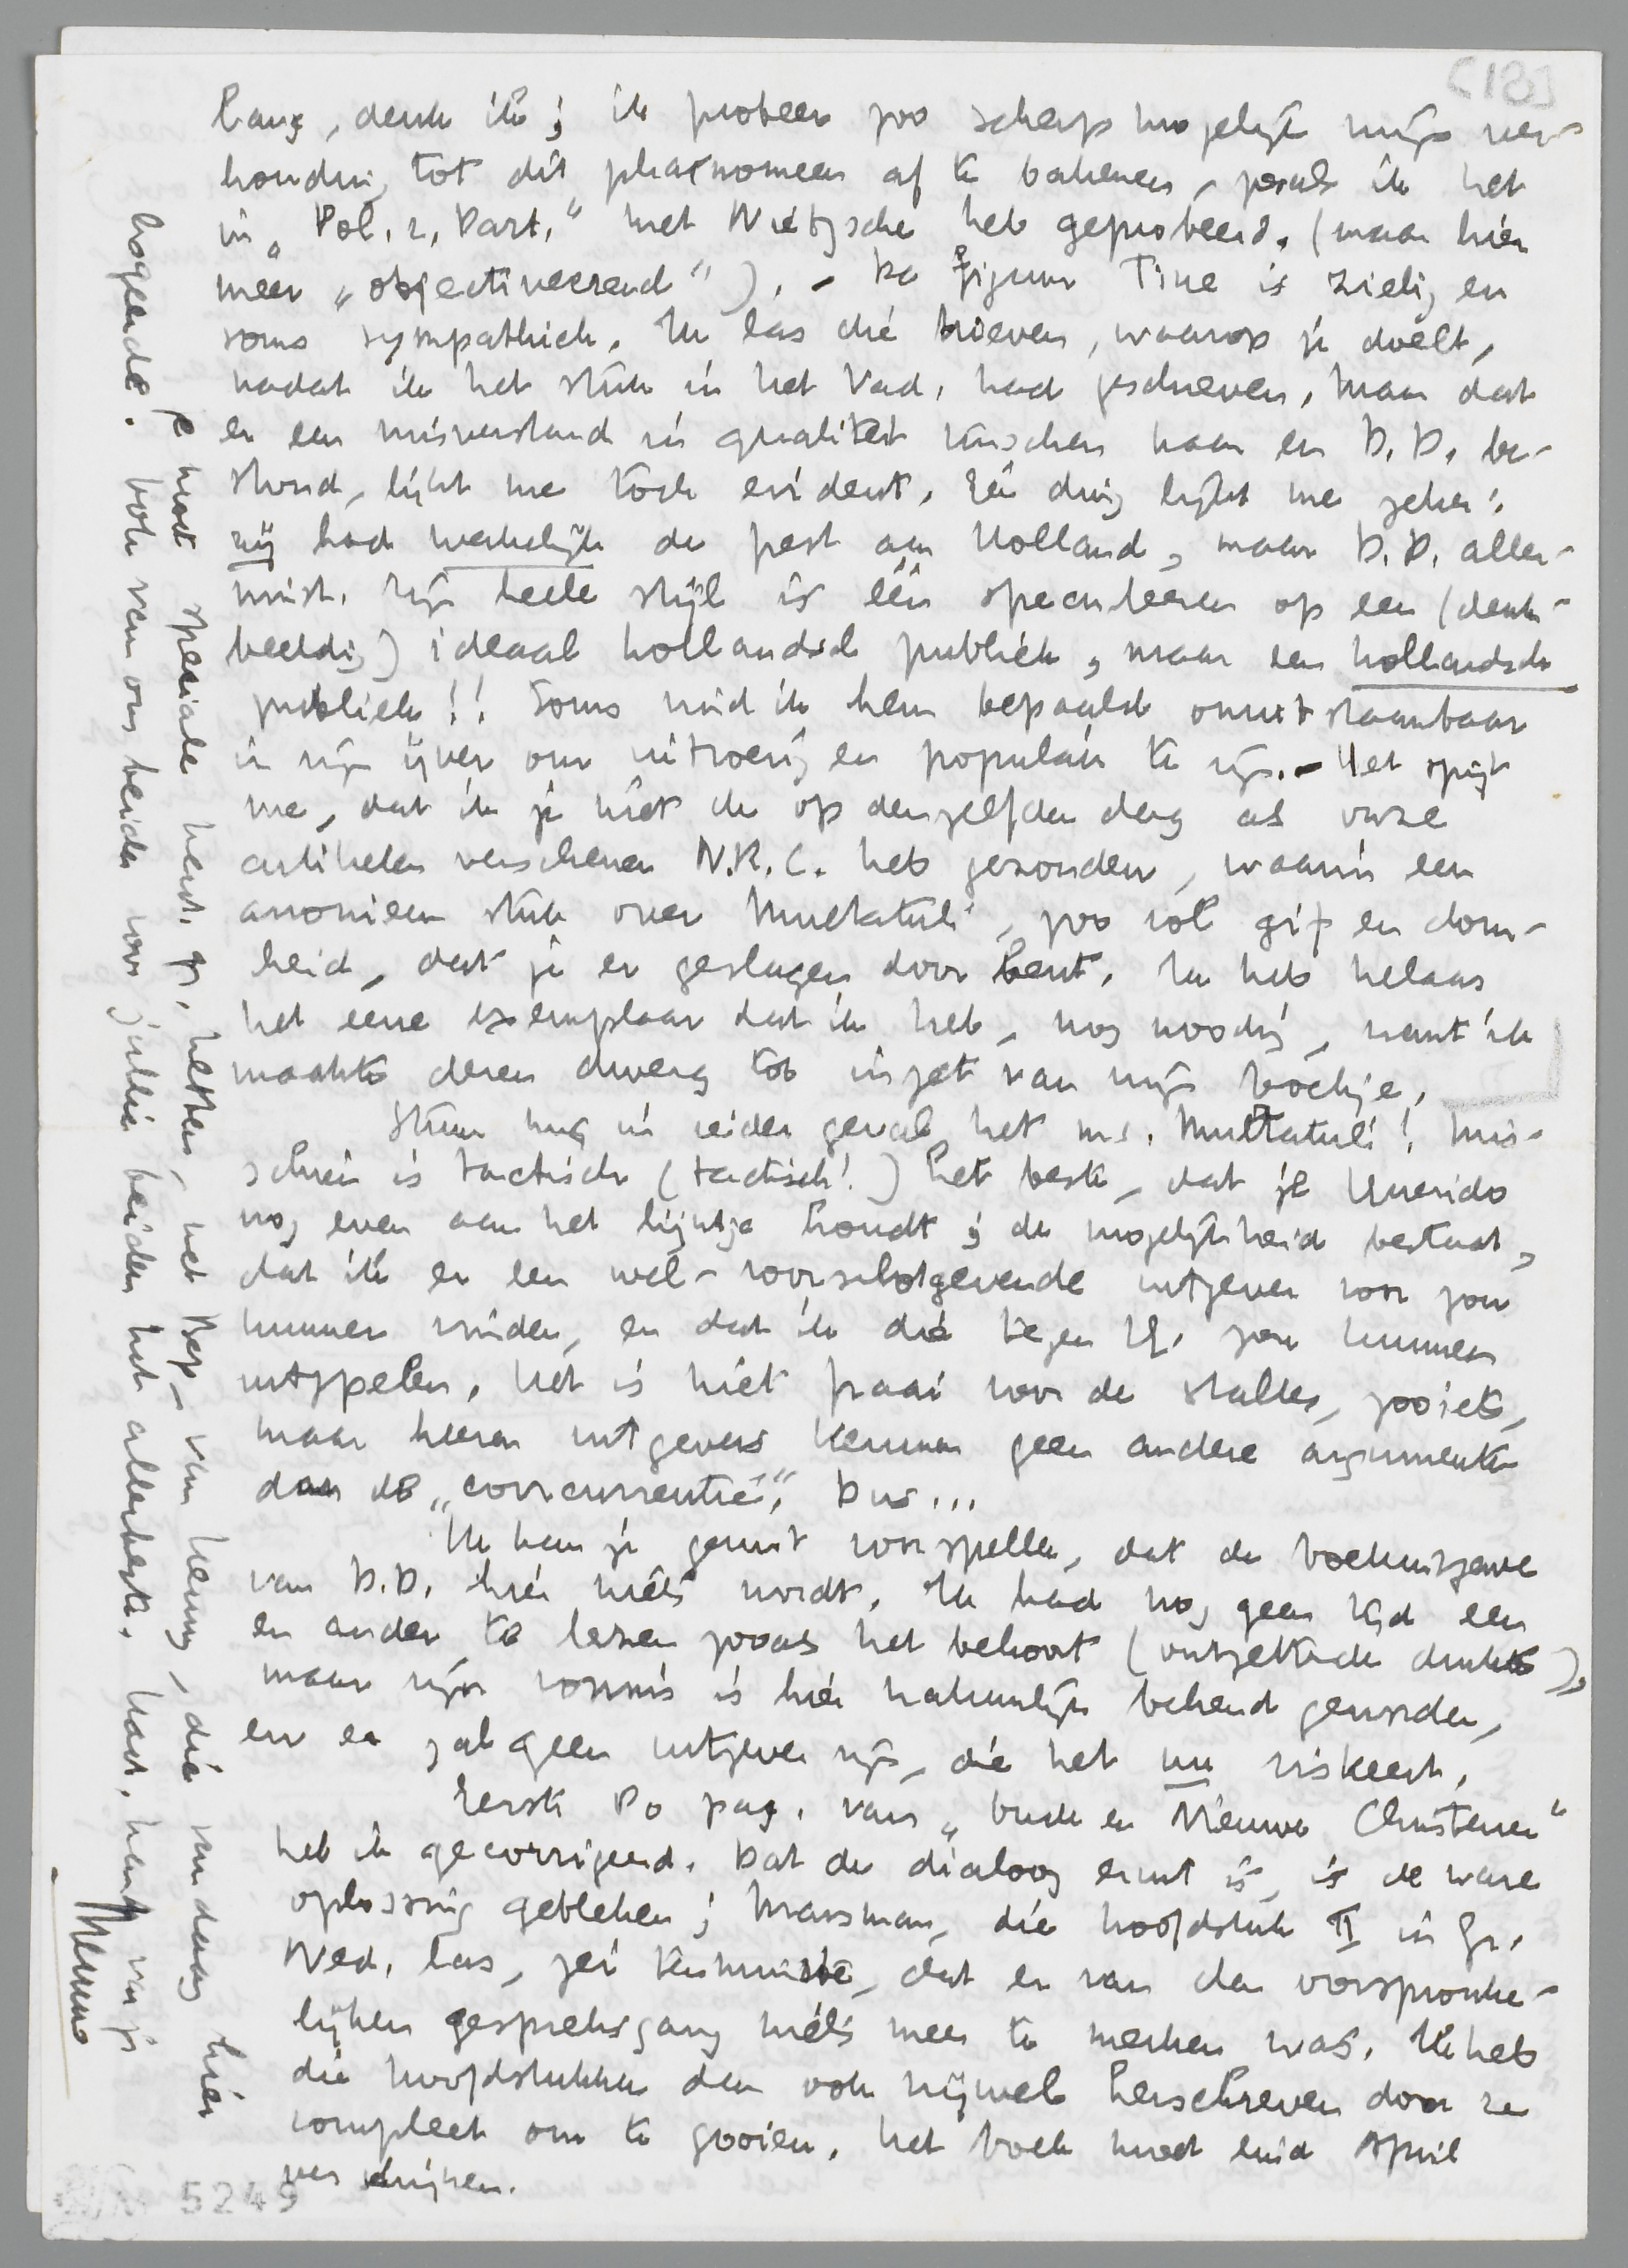 [18]
lang, denk ik; ik probeer zoo scherp mogelijk mijn ver-
houding tot dit phaenomeen af te bakenen, zooals ik het
in „Pol. z. Part." met Nietzsche heb geprobeerd. (maar hier
meer „objectiveerend"). - De figuur Tine is zielig en
soms sympathiek. Ik las die brieven, waarop je doelt,
nadat ik het stuk in het Vad. had geschreven. Maar dat
er een misverstand in qualiteit tusschen haar en D.D. be-
stond, lijkt me toch evident. Eén ding lijkt me zeker:
zij had werkelijk de pest aan Holland, maar D.D. aller-
minst. Zijn heele stijl is één speculeeren op een (denk-
beeldig) ideaal hollandsch publiek, maar een hollandsch
publiek!! Soms vind ik hem bepaald onuitstaanbaar
in zijn ijver om uitvoerig en populair te zijn. - Het spijt
me, dat ik je niet de op denzelfden dag als onze
artikelen verschenen N.R.C. heb gezonden, waarin een
anoniem stuk over Multatuli, zoo vol gif en dom-
heid, dat je er geslagen door bent. Ik heb helaas
het eene exemplaar dat ik heb, nog noodig, want ik
maakte dezen dwerg tot inzet van mijn boekje.
Stuur mij in ieder geval het ms. Multatuli! Mis-
schien is tactisch (tactisch!) het beste, dat je Querido
nog even aan het lijntje houdt; de mogelijkheid bestaat,
dat ik er een wel-voorschotgevende uitgever voor zou
kunnen vinden, en dat ik die tegen Q. zou kunnen
uitspelen. Het is niet fraai voor de stalles, zooiets,
maar heeren uitgevers kennen geen andere argumenten
dan de „concurrentie". Dus...
Ik kan je gerust voorspellen, dat de boekuitgave
van D.D. hier niets wordt. Ik had nog geen tijd een
en ander te lezen zooals het behoort (ontzettende drukte),
maar zijn vonnis is hier natuurlijk bekend geworden,
en er zal geen uitgever zijn, die het nu riskeert.
Eerste 80 pag. van „Oude en Nieuwe Christenen"
heb ik gecorrigeerd. Dat de dialoog eruit is, is de ware
oplossing gebleken; Marsman, die hoofdstuk II in Gr.
Ned. las, zei tenminste, dat er van den oorspronke-
lijken gespreksgang niets meer te merken was. Ik heb
die hoofdstukken dan ook vrijwel herschreven door ze
compleet om te gooien. Het boek moet eind April
verschijnen.
Je moet speciale hart. gr. hebben, met Bep, van Henny, die vandaag hier
logeerde. Ook van ons beiden voor jullie beiden het allerbeste. Hart. hand van je
Menno
5249